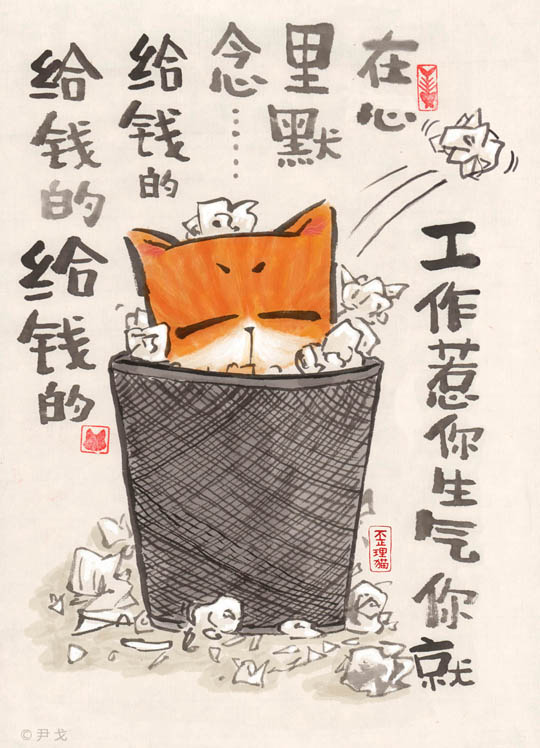 工作惹你生气你就
在心
里默
念……
给钱的
给钱的给钱的
歪理猫
©尹戈